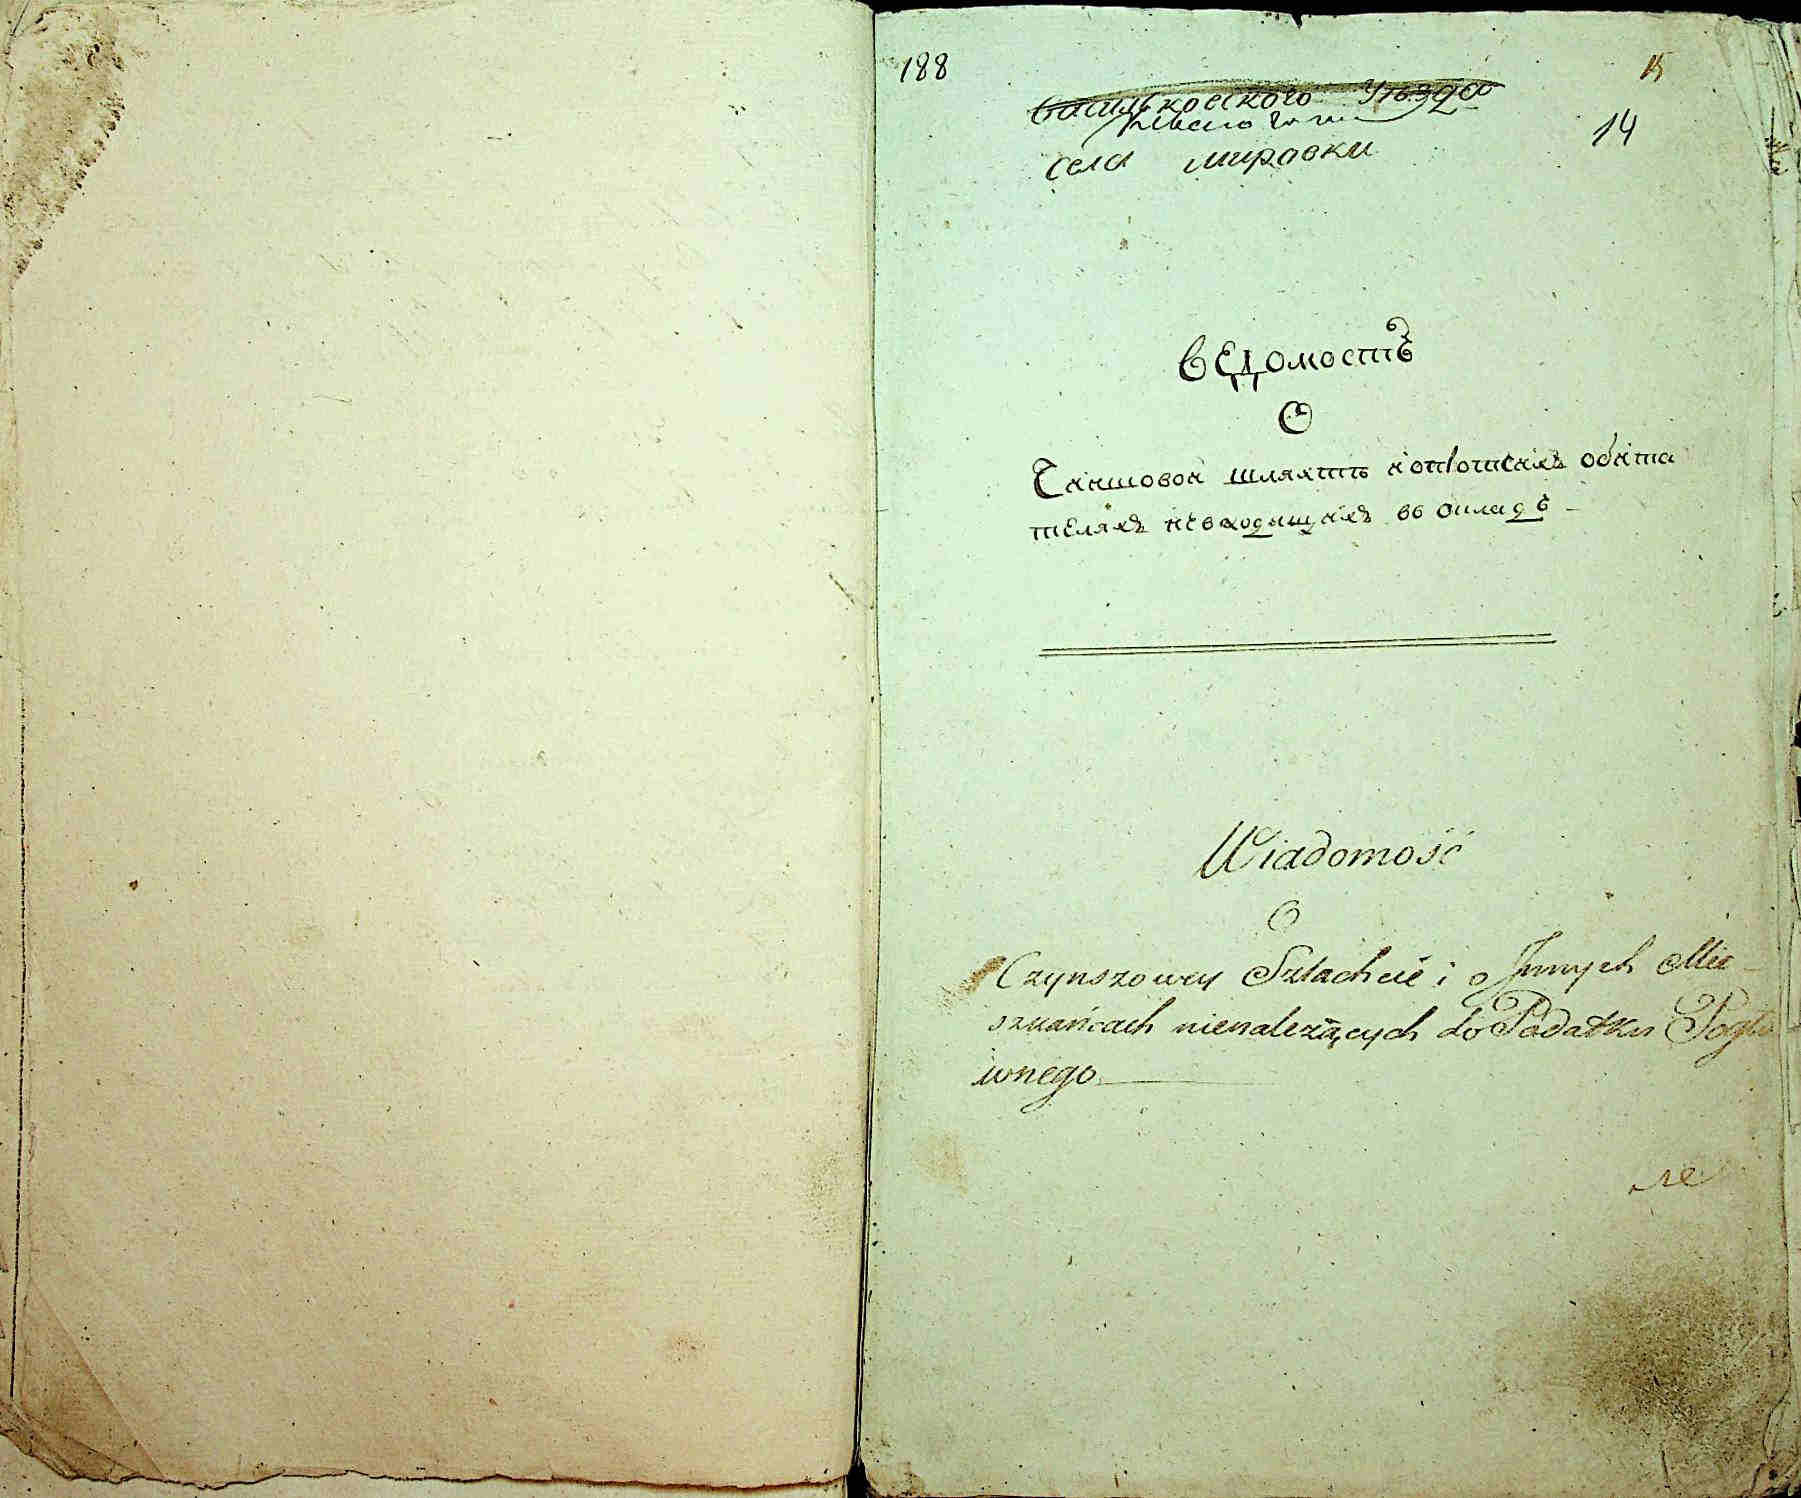 188
15
Васильковского Уѣзда
14
села мировки
ВЕдомостЪ
О
Чиншовой шляхтѣ обита
тЕляхъ нЕвходящихъ въ окладЪ
Wiadomość
O
Czynszowey Szlachcie i o Jnnych Mie-
szkańcach nienależących do Podatku Pogłó
wnego